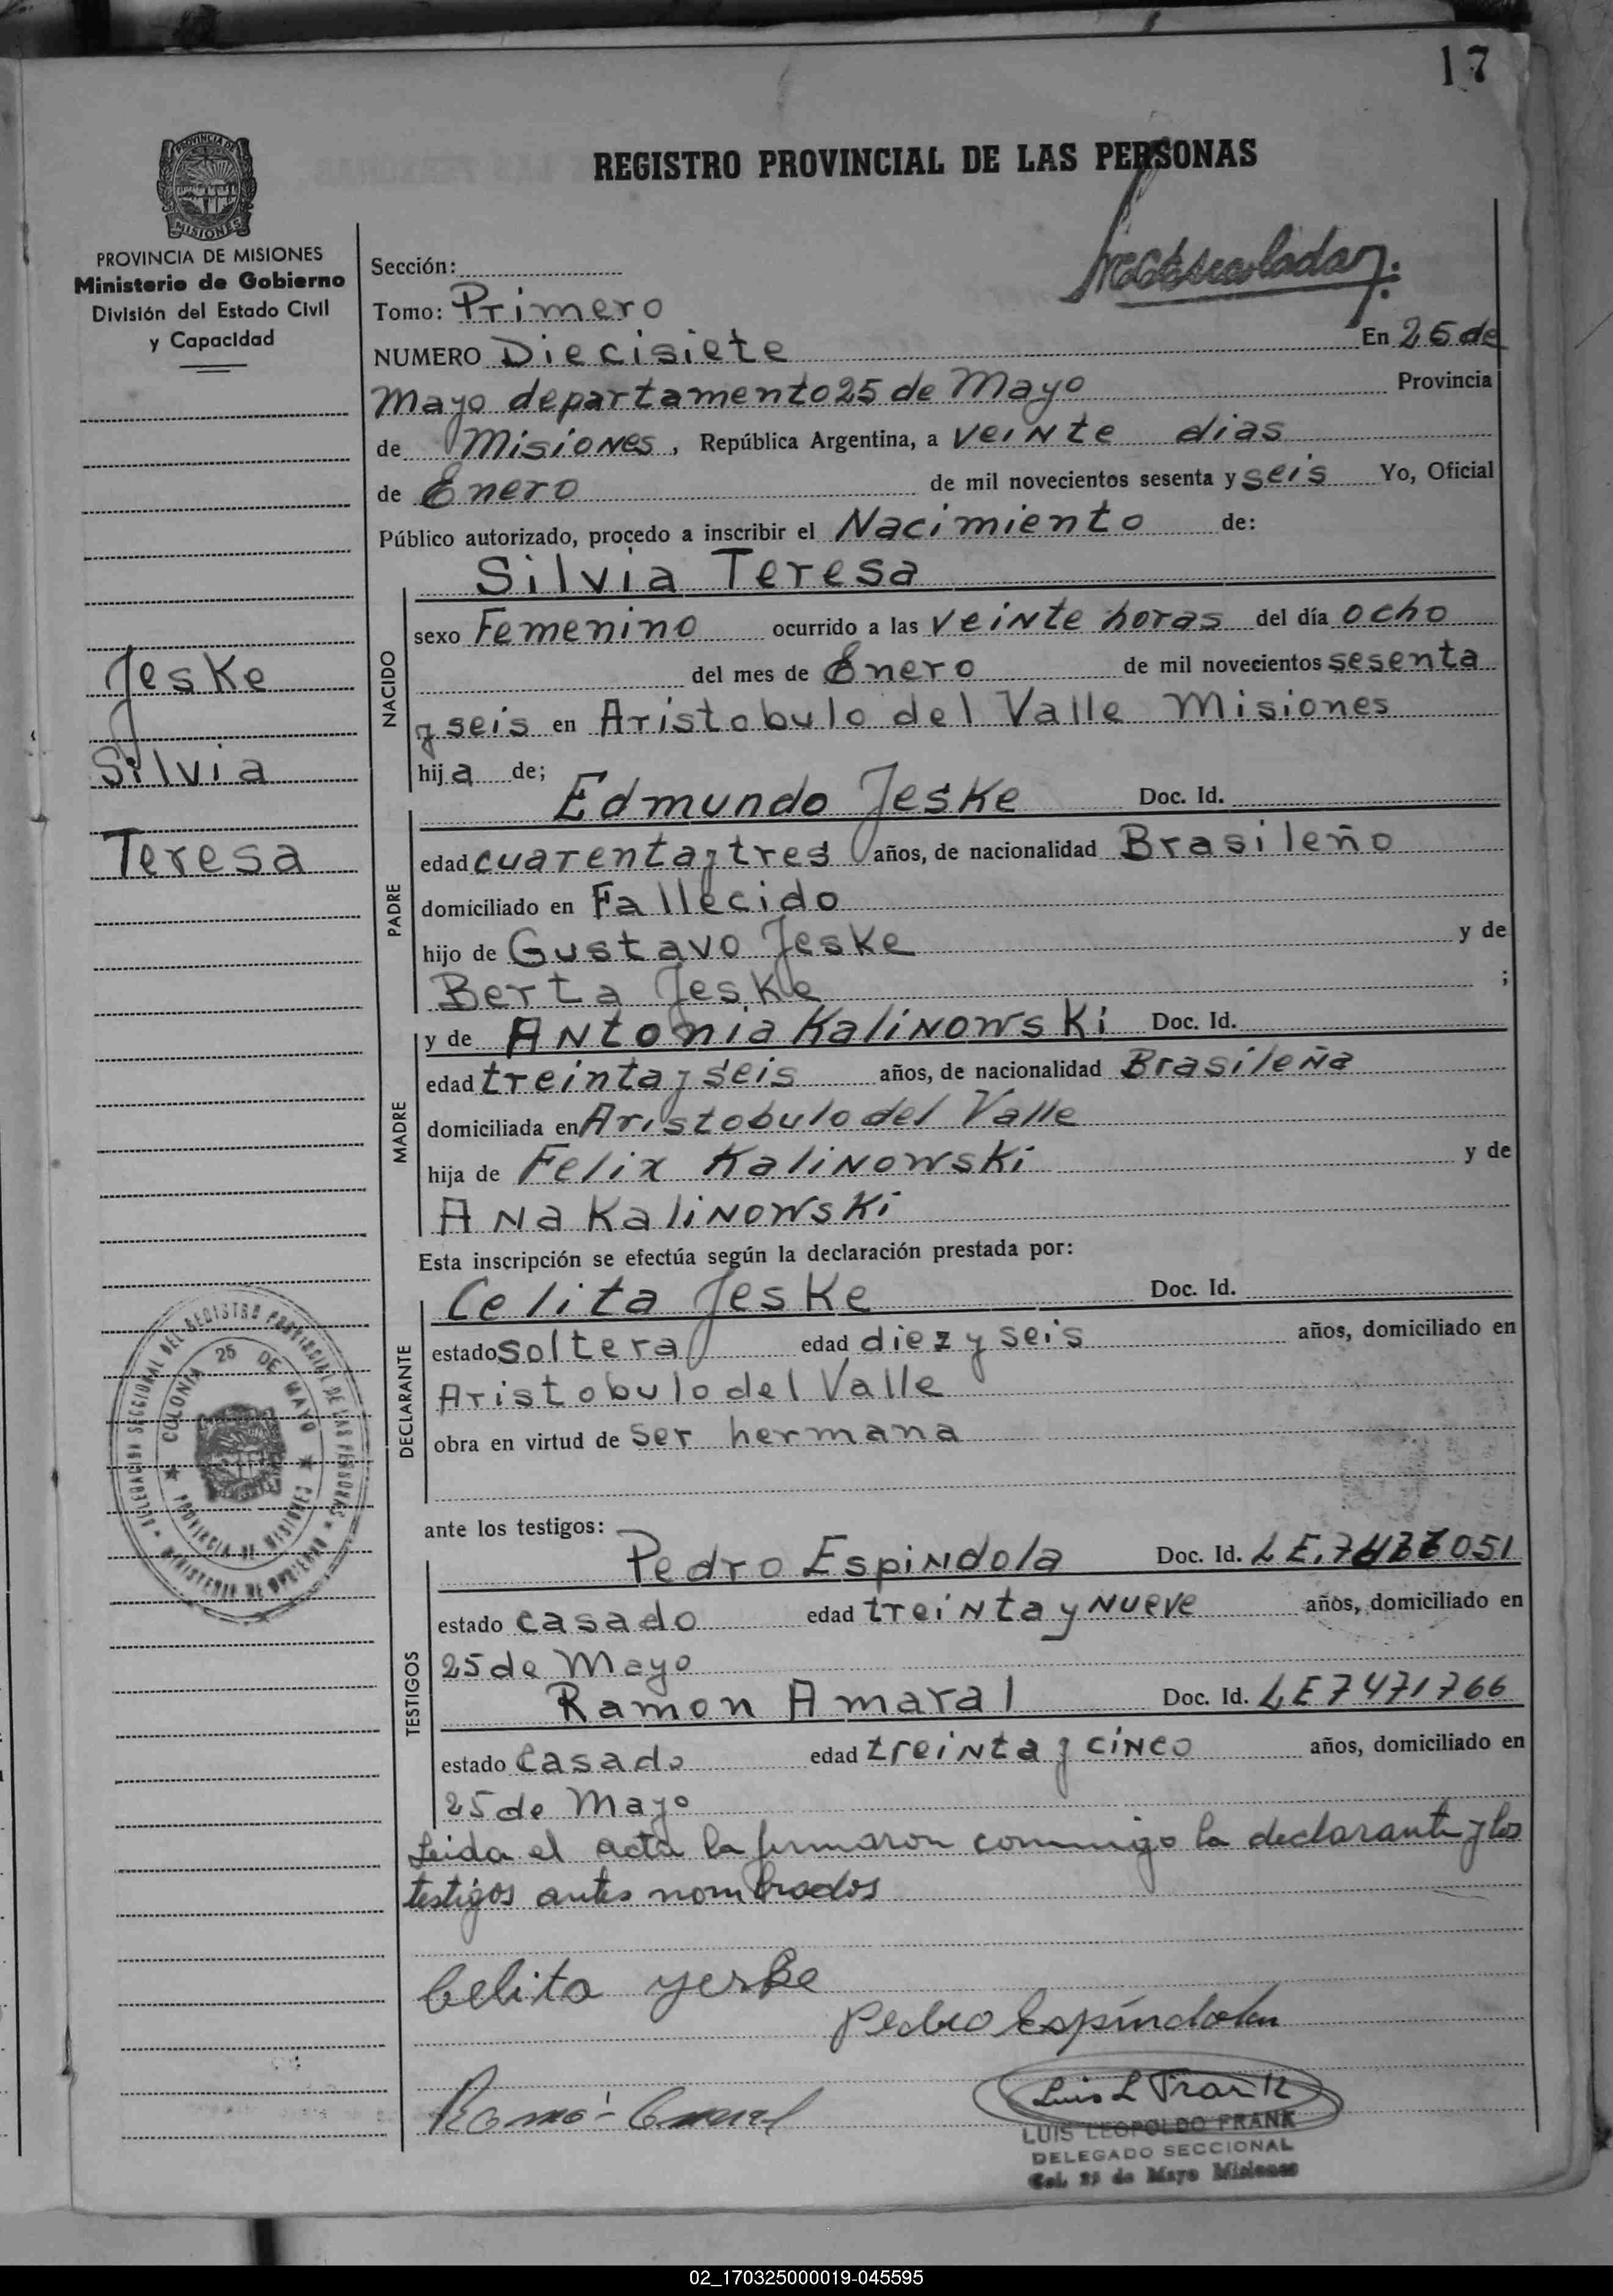 17
REGISTRO PROVINCIAL DE LAS PERSONAS
PROVINCIA DE
MISIONES
PROVINCIA DE MISIONES
Ministerio de Gobierno
División del Estado Civil
y Capacidad
Jeske
Silvia
Teresa
DELEGACION SECCIONAL DEL REGISTRO PROVINCIAL DE LAS PERSONAS
MINISTERIO DE GOBIERNO
COLONIA 25 DE MAYO
PROVINCIA DE MISIONES
Sección:
Tomo: Primero
NUMERO Diecisiete En 25 de
Mayo departamento 25 de Mayo Provincia
de Misiones, República Argentina, a veinte dias
de Enero de mil novecientos sesenta y seis Yo, Oficial
Público autorizado, procedo a inscribir el Nacimiento de:
NACIDO
Silvia Teresa
sexo Femenino ocurrido a las veinte horas del día ocho
del mes de Enero de mil novecientos sesenta
y seis en Aristobulo del Valle Misiones
hija de;
PADRE
Edmundo Jeske Doc. Id.
edad cuarenta y tres años, de nacionalidad Brasileño
domiciliado en Fallecido
hijo de Gustavo Jeske y de
Berta Jeske ;
MADRE
y de Antonia Kalinowski Doc. Id.
edad treinta y seis años, de nacionalidad Brasileña
domiciliada en Aristobulo del Valle
hija de Felix Kalinowski y de
Ana Kalinowski
Esta inscripción se efectúa según la declaración prestada por:
DECLARANTE
Celita Jeske Doc. Id.
estado soltera edad diez y seis años, domiciliado en
Aristobulo del Valle
obra en virtud de ser hermana
ante los testigos:
TESTIGOS
Pedro Espindola Doc. Id. LE.
estado casado edad treinta y nueve años, domiciliado en
25 de Mayo
Ramon Amaral Doc. Id. LE 7471766
estado casado edad treinta y cinco años, domiciliado en
25 de Mayo
Leida el acta la firmaron conmigo la declarante y los
testigos antes nombrados
Celita yeske
Pedro Espíndola
Luis L Frank
LUIS LEOPOLDO FRANK
DELEGADO SECCIONAL
Col. 25 de Mayo Misiones
02_170325000019-045595